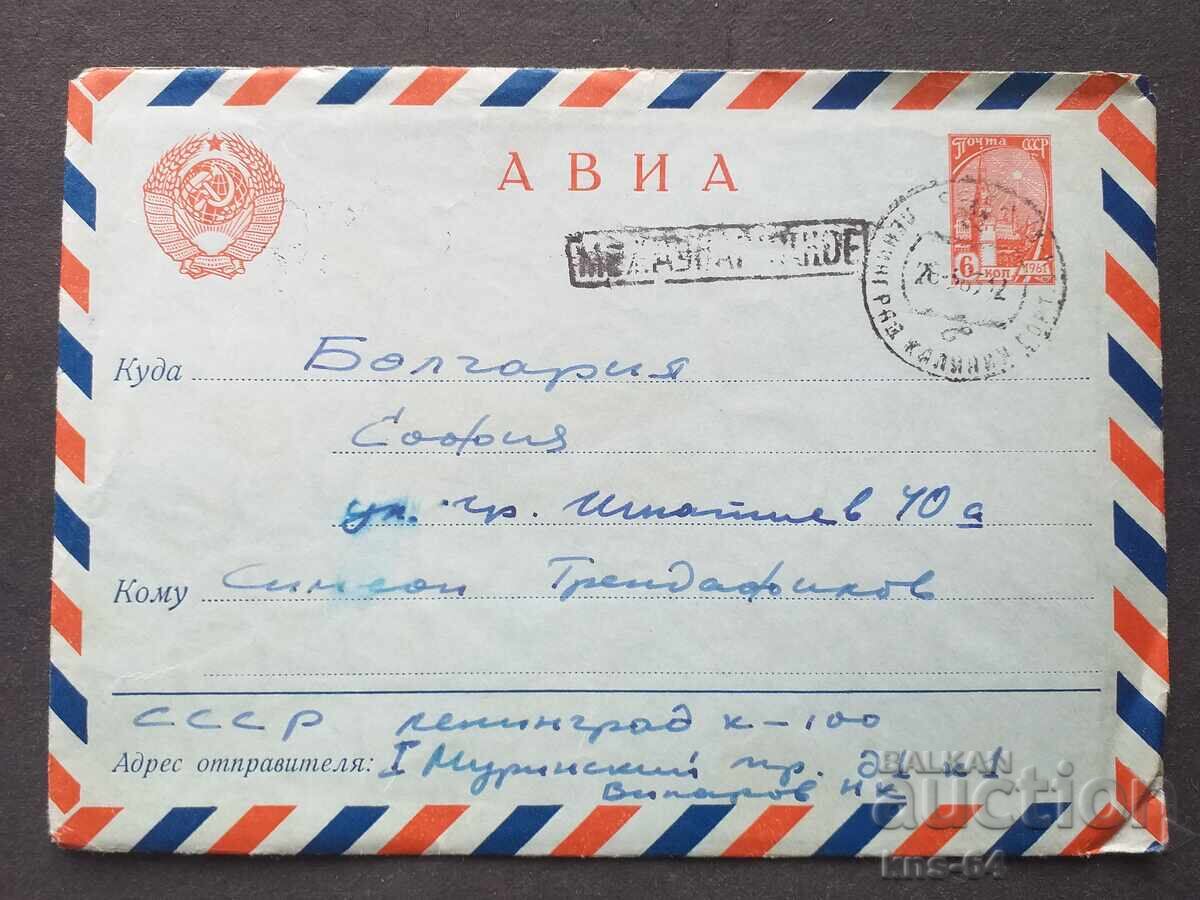 АВИА
Почта СССР
6 коп 1961
МЕЖДУНАРОДНОЕ
Куда Болгария
София
ул. гр. Игнатиев 40а
Кому Симеон Трендафилов
СССР Ленинград К-100
Адрес отправителя: I Муринский пр.
BALKAN
auction
kns-64